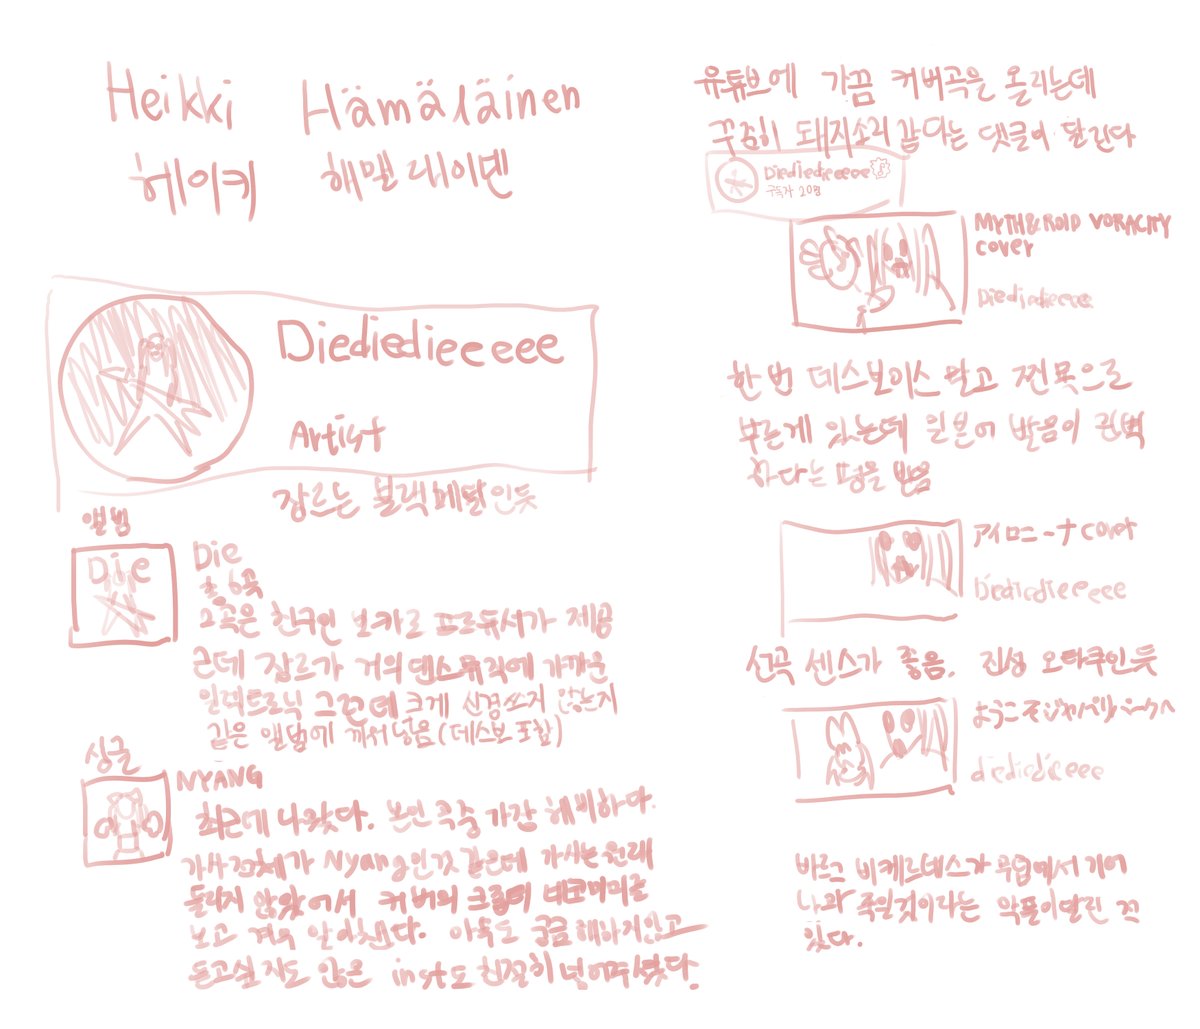 Heikki Hämäläinen
헤이키 해맬레이넨
Diediedieeeeee
Artist
장르는 블랙메탈인듯
앨범
Die
Die
총 6곡
2곡은 한국인 보카로 프로듀서가 제공
근데 장르가 거의 댄스뮤직에 가까운
일렉트로닉 그런데 크게 신경쓰지 않는지
같은 앨범에 껴서 넣음(데스보 포함)
싱글
NYANG
최근에 나왔다. 본인 곡중 가장 헤비하다.
가사 전체가 Nyang인것 같은데 가사는 원래
들리지 않았어서 커버의 크롭티 네코미미를
보고 겨우 알아챘다. 아무도 궁금해하지않고
듣고싶지도 않은 inst도 친절히 넣어주셨다.
유튜브에 가끔 커버곡을 올리는데
꾸준히 돼지소리 같다는 댓글이 달린다
Diediedieeeeee
구독자 20명
MYTH&ROID VORACITY
cover
Diediedieeeee
한번 데스보이스 말고 찐목으로
부른게 있는데 일본어 발음이 완벽
하다는 평을 받음
アイロニーナ cover
Diediedieeeeee
선곡 센스가 좋음. 진성 오타쿠인듯
ようこそジャパリパークへ
diediedieeeee
바르크 비케르네스가 무덤에서 기어
나와 죽일것이라는 악플이달린 적
있다.